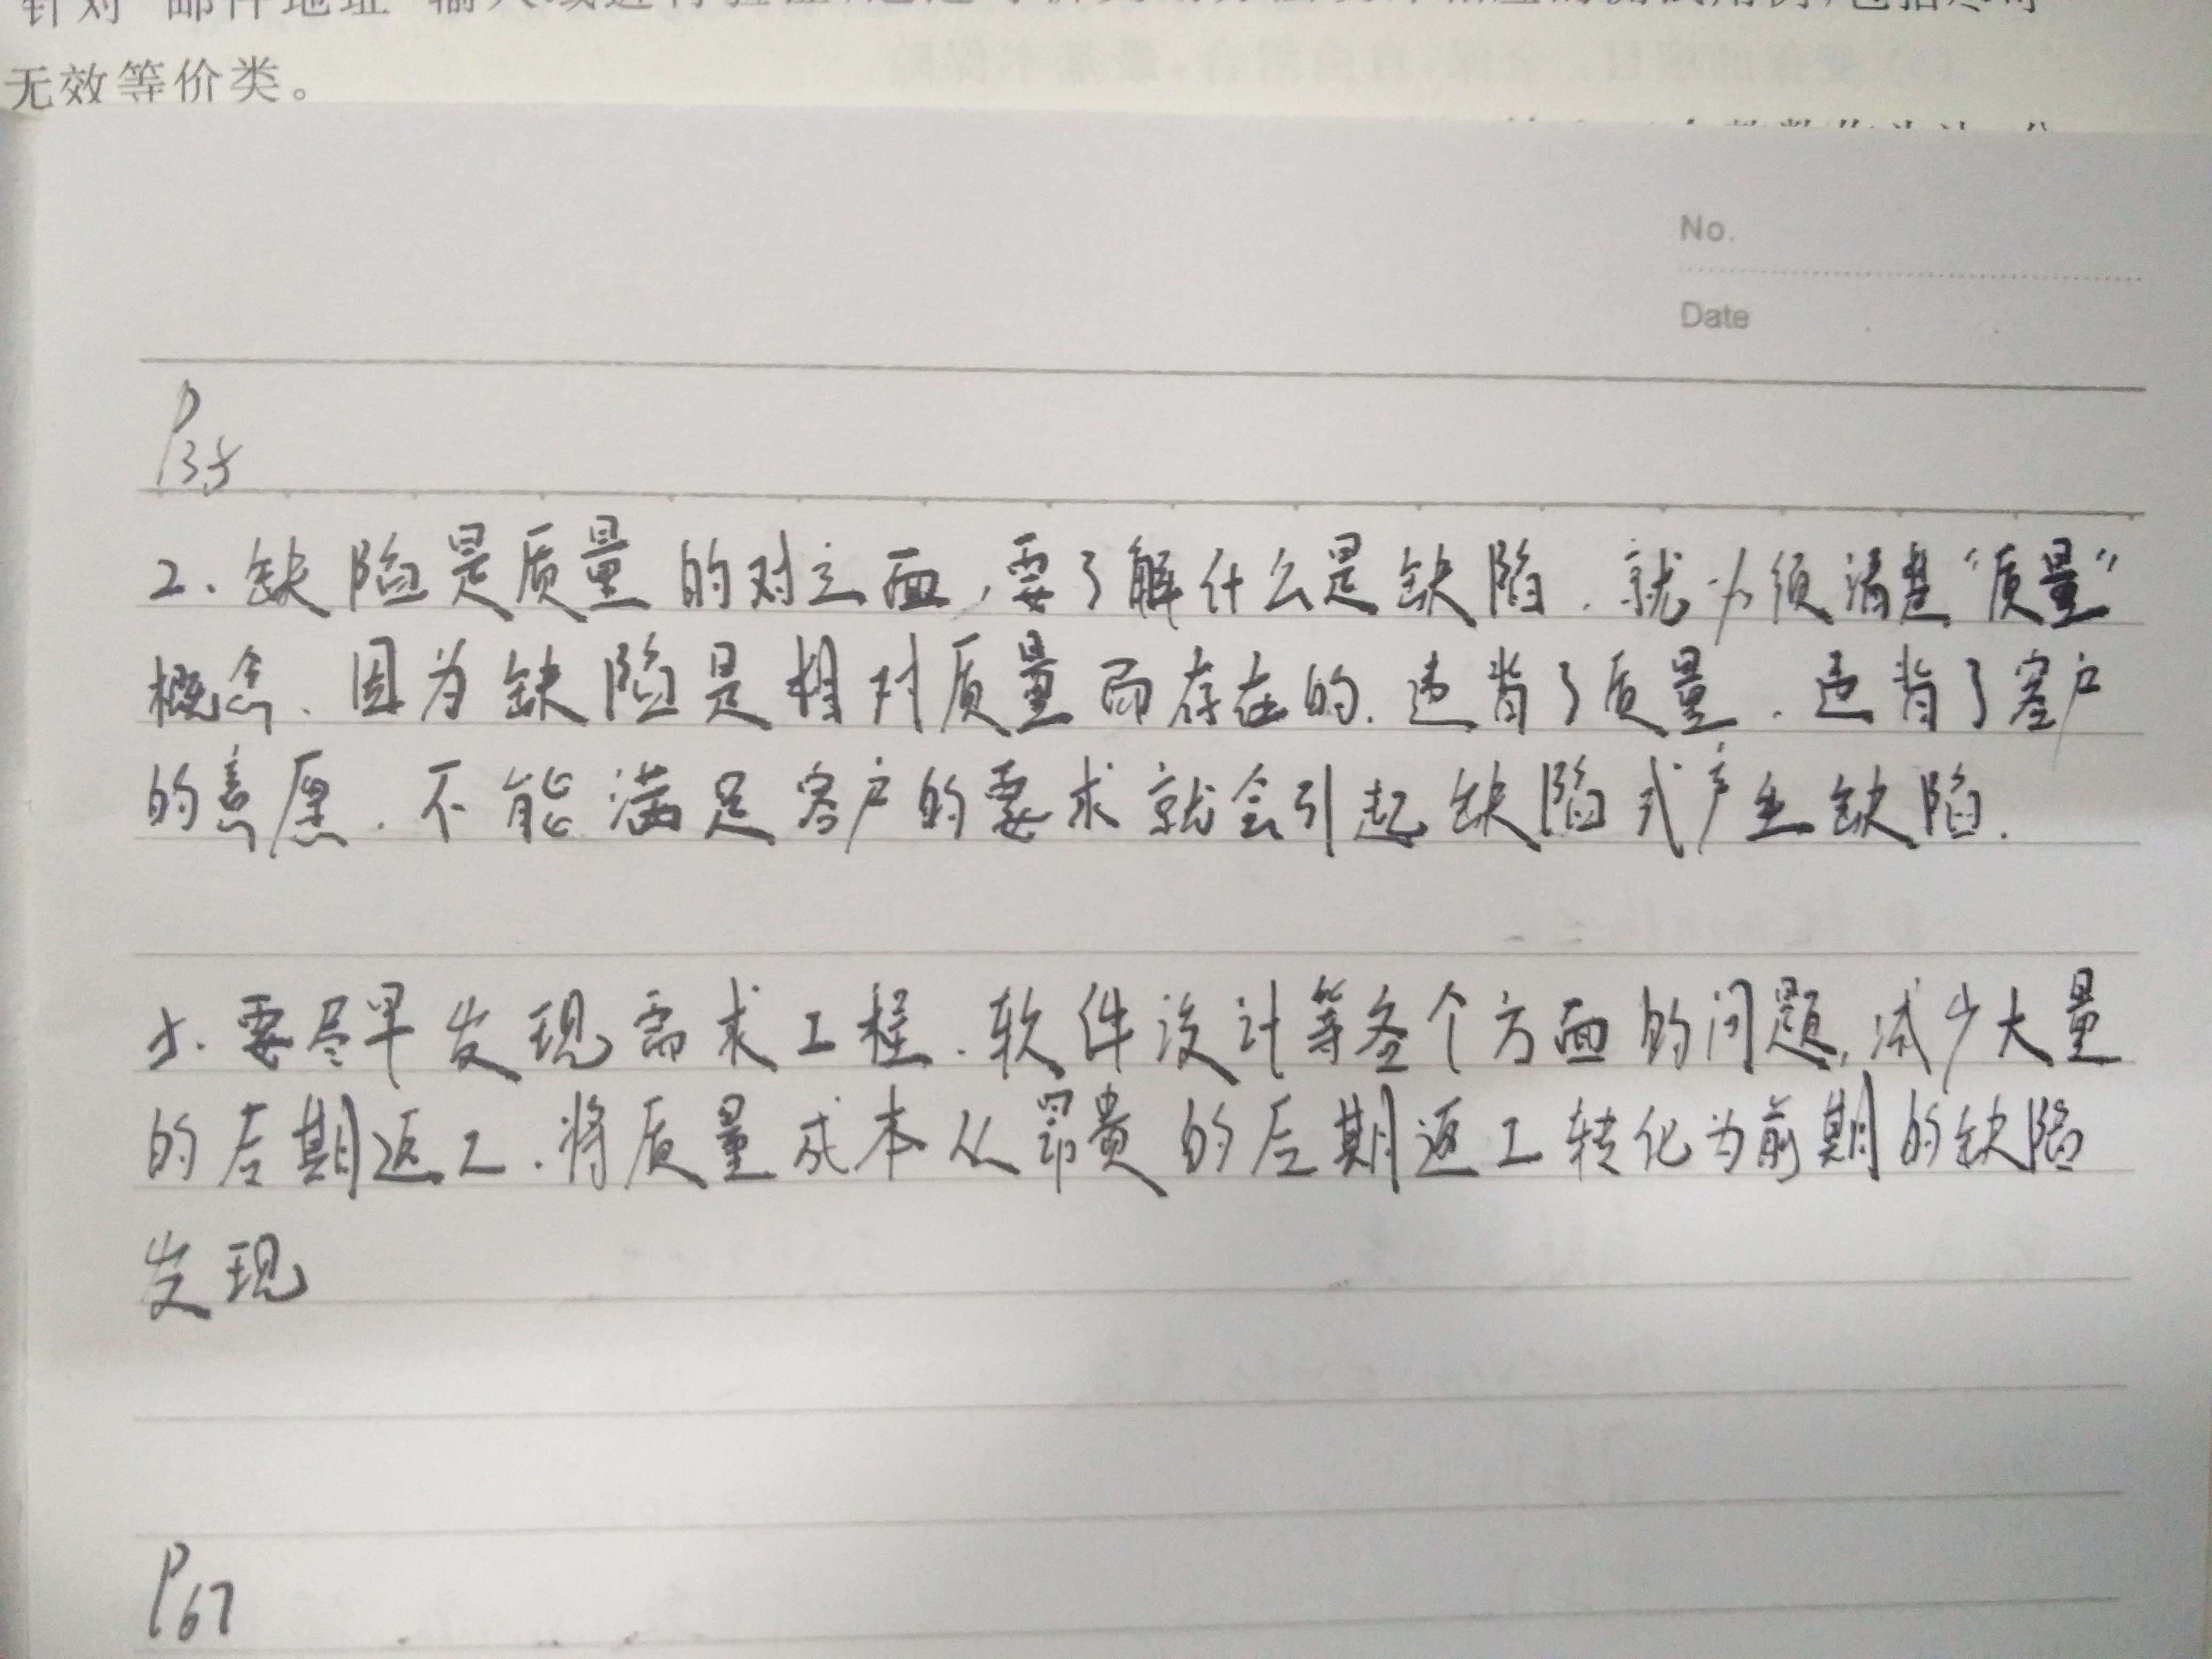 针对"邮件地址"输入域进行验证
无效等价类。
No.
Date
P35
2.缺陷是质量的对立面,要了解什么是缺陷.就必须清楚"质量"
概念.因为缺陷是相对质量而存在的.违背了质量.违背了客户
的意愿.不能满足客户的要求就会引起缺陷或产生缺陷.
5.要尽早发现需求工程.软件设计等各个方面的问题,减少大量
的后期返工.将质量成本从昂贵的后期返工转化为前期的缺陷
发现
P67